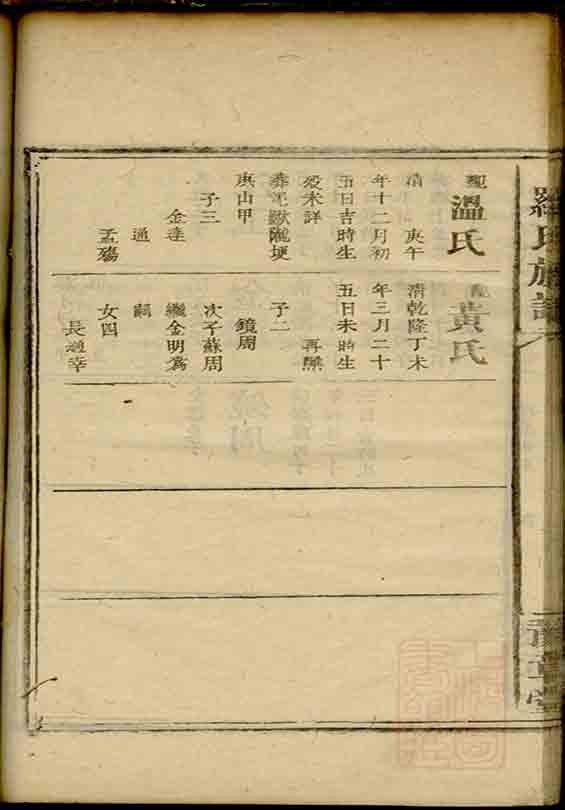 羅氏族譜
豫章堂
配溫氏
清 庚午
年十二月初
五日吉時生
歿未詳
葬 隴埂
庚山甲
子三
金達
通
孟殤
配黃氏
清乾隆丁未
年三月二十
五日未時生
再醮
子二
鏡周
次子蘇周
繼金明爲
嗣
女四
長適幸
上海圖書館藏